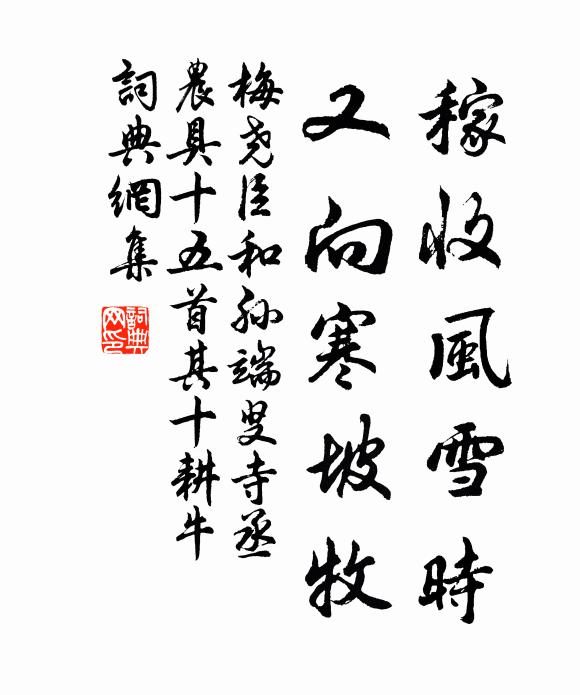 稼收風雪時
又向寒坡牧
梅堯臣和孫端叟寺丞
農具十五首其十耕牛
詞典網集
詞典网印